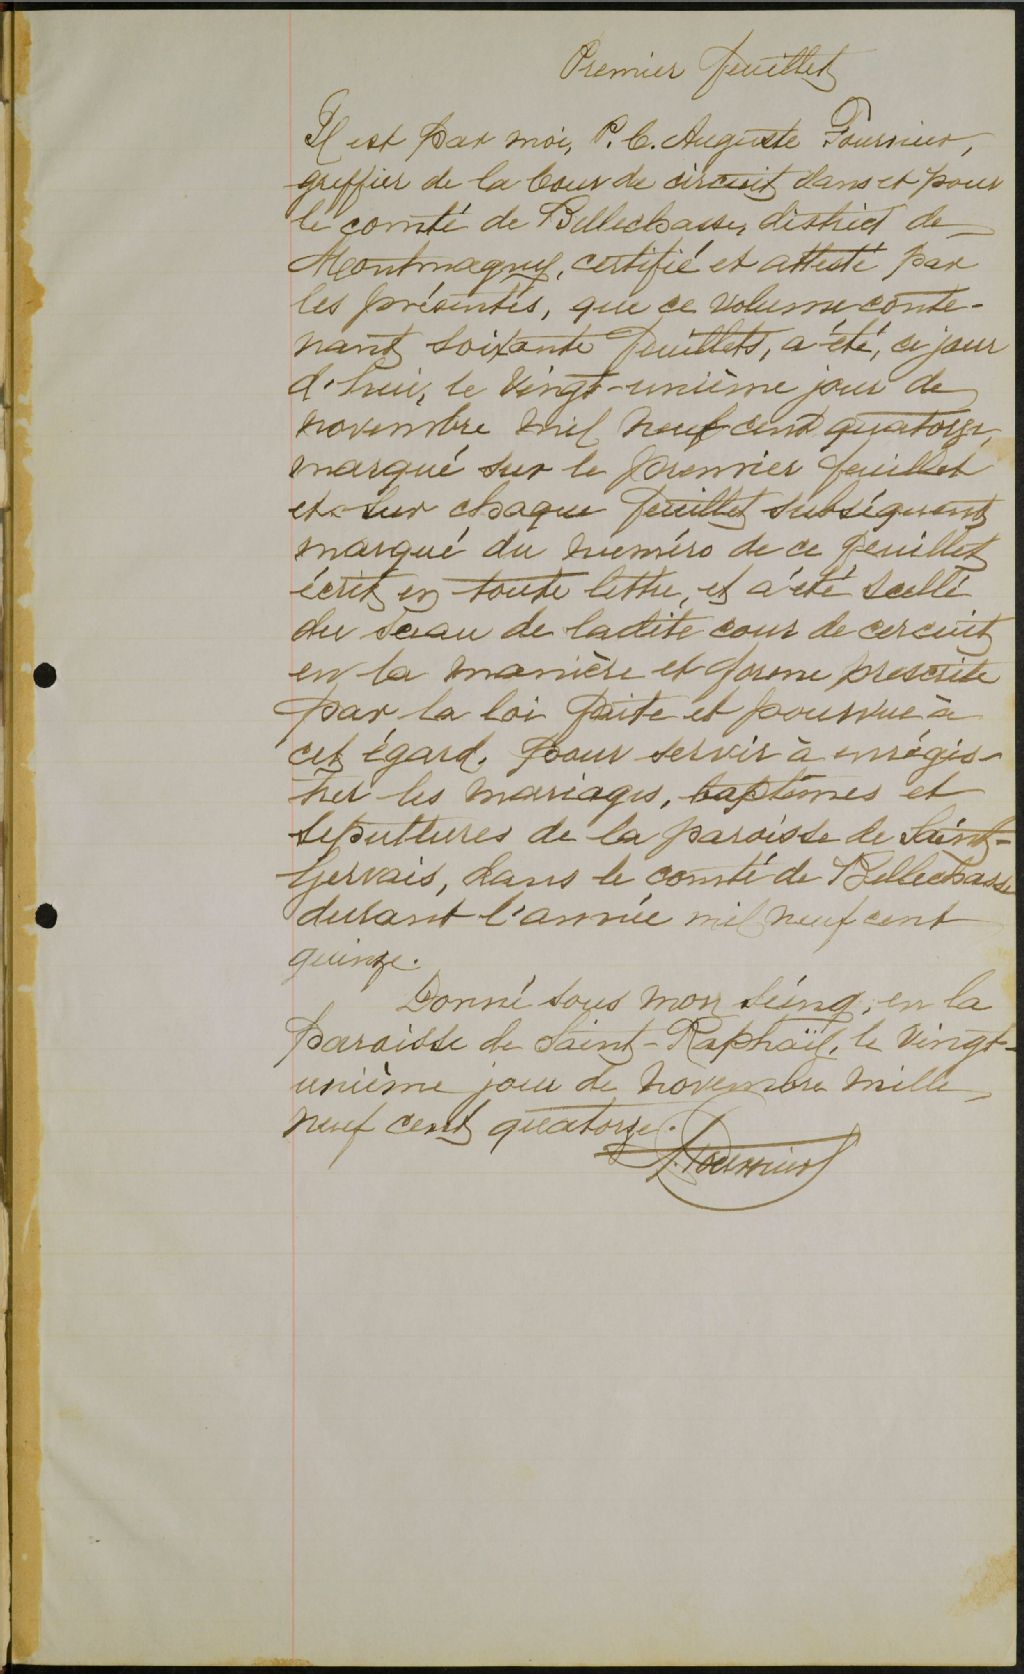 Premier feuillet
Il est par moi, P. C. Auguste Fournier,
greffier de la Cour de circuit dans et pour
le comté de Bellechasse, district de
Montmagny, certifié et attesté par
les présentes, que ce volume conte-
nant soixante feuillets, a été, ce jour
d'hui, le vingt-unième jour de
novembre mil neuf cent quatorze,
marqué sur le premier feuillet
et sur chaque feuillet subséquent
marqué du numéro de ce feuillet
écrit en toute lettre, et a été scellé
du sceau de ladite cour de circuit
en la manière et forme prescrite
par la loi faite et pourvue à
cet égard. Pour servir à enrégis-
trer les mariages, baptêmes et
sépultures de la paroisse de Saint-
Gervais, dans le comté de Bellechasse
durant l'année mil neuf cent
quinze.
Donné sous mon séing, en la
paroisse de Saint-Raphaël, le vingt-
unième jour de novembre mille
neuf cent quatorze.
A. Fournier